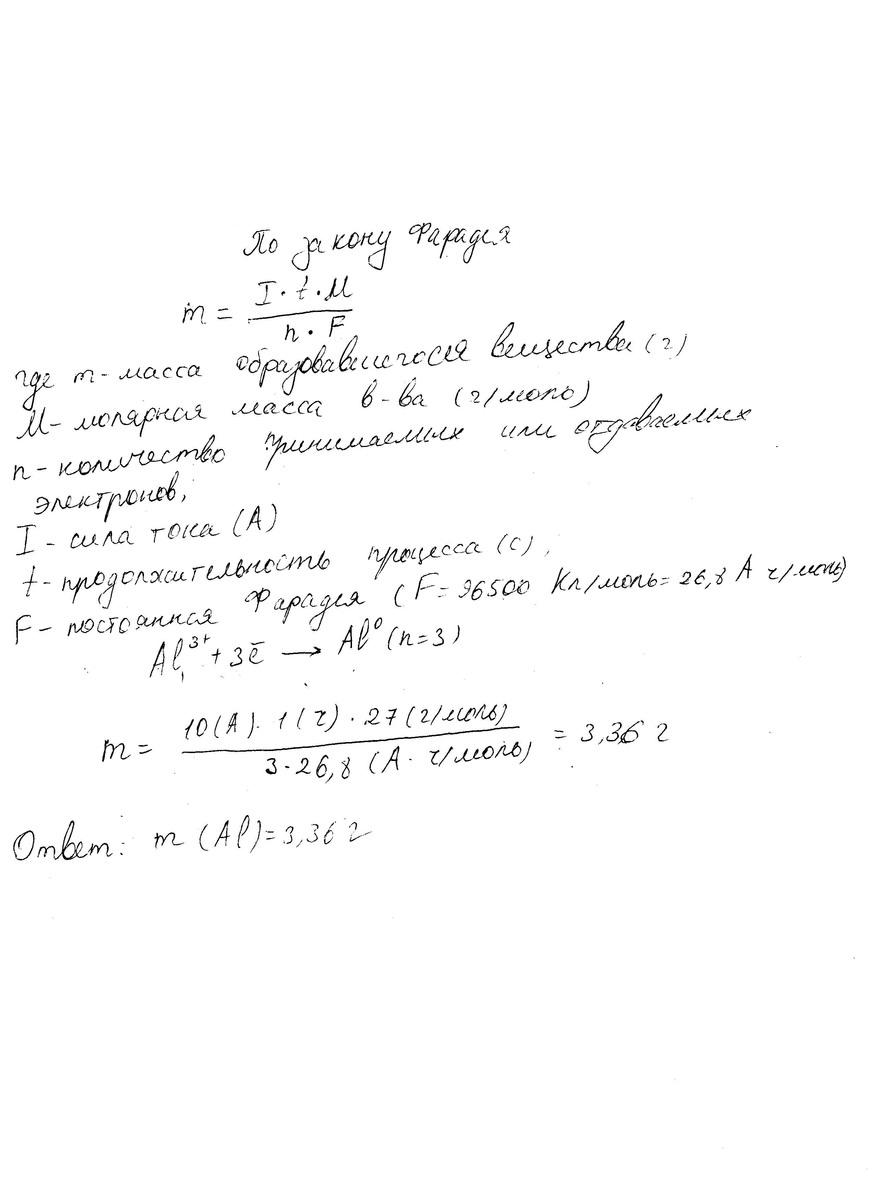 По закону Фарадея
m = I · t · M / n · F
где m - масса образовавшегося вещества (г)
M - молярная масса в-ва (г/моль)
n - количество принимаемых или отдаваемых
электронов,
I - сила тока (А)
t - продолжительность процесса (с),
F - постоянная Фарадея (F = 96500 Кл/моль = 26,8 А ч/моль)
Al³⁺ + 3ē → Al⁰ (n=3)
m = 10 (А) · 1 (ч) · 27 (г/моль) / 3 · 26,8 (А · ч/моль) = 3,36 г
Ответ: m (Al) = 3,36 г